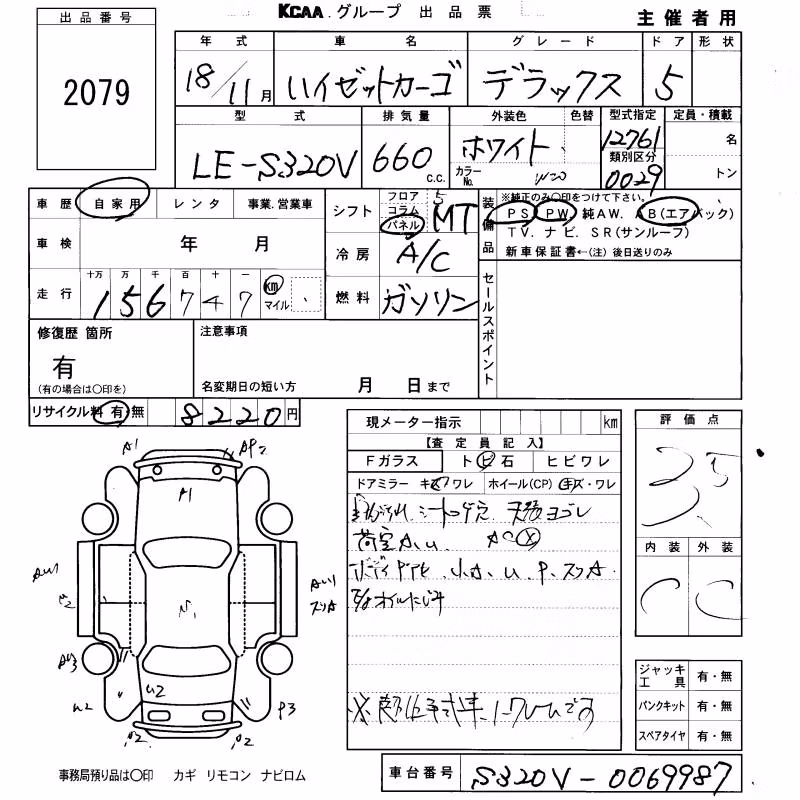 KCAA グループ 出品票
主催者用
出品番号
2079
年式 車名 グレード ドア 形状
18/11月 ハイゼットカーゴ デラックス 5
型式 排気量 外装色 色替 型式指定 定員・積載
LE-S320V 660 c.c. ホワイト カラーNo. W20 12761 名
類別区分
0029 トン
車歴 自家用 レンタ 事業.営業車
シフト フロア コラム パネル 5 MT
装備品 ※純正のみ〇印をつけて下さい。
PS PW 純AW. AB(エアバック)
TV. ナビ. SR(サンルーフ)
新車保証書←(注) 後日送りのみ
車検 年 月
冷房 A/C
走行 十万 万 千 百 十 一
156747 km マイル
燃料 ガソリン
セールスポイント
修復歴 箇所
有
(有の場合は〇印を)
注意事項
名変期日の短い方 月 日まで
リサイクル料 有 無 8220円
現メーター指示 km
【査定員記入】
Fガラス トビ石 ヒビワレ
ドアミラー キズ ワレ ホイール(CP) キズ・ワレ
シートコゲ穴 天張ヨゴレ
荷室A.U. AC
小A.U.P.スリA
評価点
3.5
内装 外装
C C
ジャッキ工具 有・無
パンクキット 有・無
スペアタイヤ 有・無
A1 AP2
A1
AU1 AU1
U2 スリA
AU3
U2 U2 P3
P2 P2
事務局預り品は〇印 カギ リモコン ナビロム
車台番号 S320V-0069987